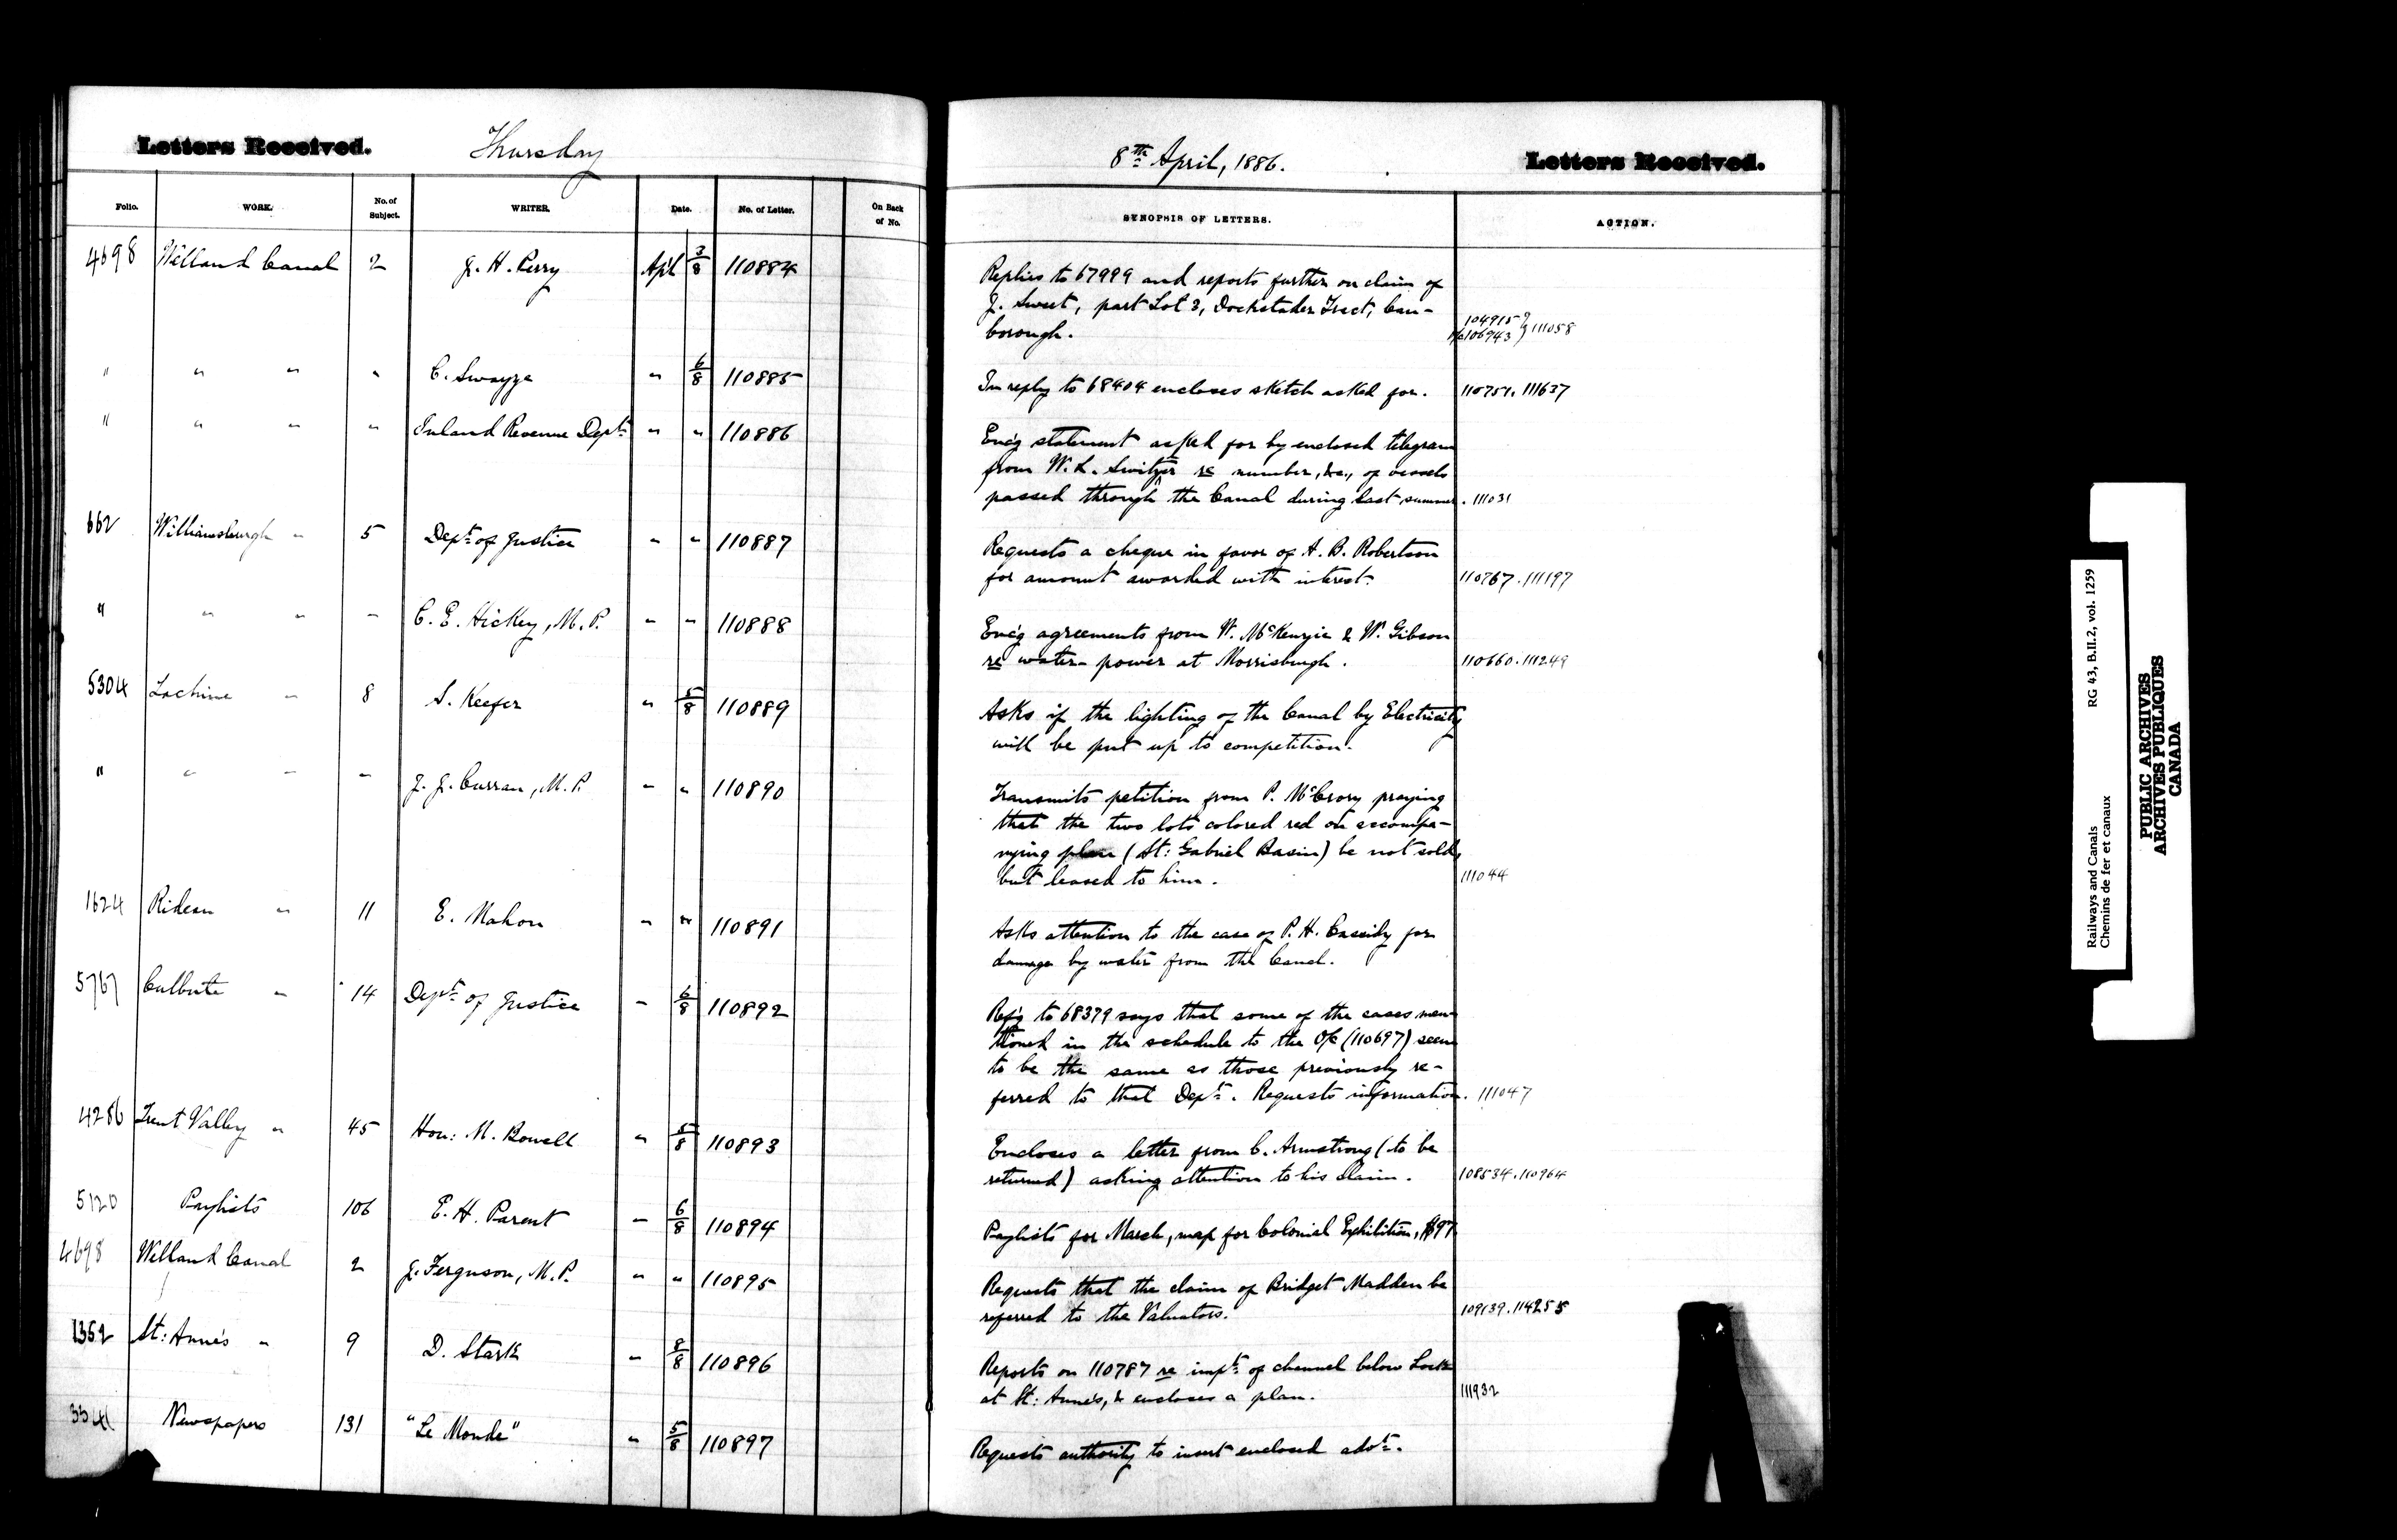 Letters Received. Thursday
8th April, 1886. Letters Received.
Folio. WORK. No. of Subject. WRITER. Date. No. of Letter. On Back of No.
SYNOPSIS OF LETTERS. ACTION.
4698 Welland Canal 2 J. H. Perry Apl 3/8 110884
Replies to 67999 and reports further on claim of
J. Sweet, part Lot 3, Dockstader Tract, Can-
borough.
104915
106943 } 111058
" " " " C. Swayze " 6/8 110885
In reply to 68404 encloses sketch asked for. 110751. 111637
" " " " Inland Revenue Dept. " " 110886
Enc'g statement asked for by enclosed telegram
from W. L. Switzer re number, &c., of vessels
passed through the Canal during last summer. 111031
662 Williamsburgh " 5 Dept. of Justice " " 110887
Requests a cheque in favor of A. B. Robertson
for amount awarded with interest. 110767. 111197
" " " " C. E. Hickey, M.P. " " 110888
Enc'g agreements from W. McKenzie & W. Gibson
re water-power at Morrisburgh. 110660. 111249
5304 Lachine " 8 S. Keefer " 5/8 110889
Asks if the lighting of the Canal by Electricity
will be put up to competition.
" " " " J. J. Curran, M.P. " " 110890
Transmits petition from P. McCrory praying
that the two lots colored red on accompa-
nying plan (St: Gabriel Basin) be not sold,
but leased to him. 111044
1624 Rideau " 11 E. Mahon " " 110891
Asks attention to the case of P. H. Cassidy for
damage by water from the Canal.
5767 Culbute " 14 Dept. of Justice " 6/8 110892
Ref'g to 68379 says that some of the cases men-
tioned in the schedule to the O/C (110697) seem
to be the same as those previously re-
ferred to that Dept. Requests information. 111047
4286 Trent Valley " 45 Hon: M. Bowell " 5/8 110893
Encloses a letter from C. Armstrong (to be
returned) asking attention to his claim. 108534. 110964
5120 Paylists 106 E. H. Parent " 6/8 110894
Paylists for March, map for Colonial Exhibition, $97
4698 Welland Canal 2 J. Ferguson, M.P. " " 110895
Requests that the claim of Bridget Madden be
referred to the Valuators. 109139. 114255
1352 St: Anne's " 9 D. Stark " 8/8 110896
Reports on 110787 re impt. of channel below Lock
at St: Anne's, & encloses a plan. 111932
Newspapers 131 "Le Monde" " 5/8 110897
Requests authority to insert enclosed advt.
Railways and Canals RG 43, B.II.2, vol. 1259
Chemins de fer et canaux
PUBLIC ARCHIVES
ARCHIVES PUBLIQUES
CANADA